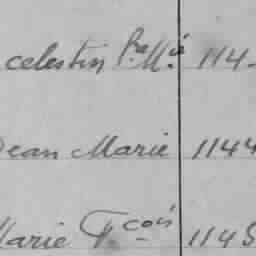 celestin Pre Mie 114
Jean Marie 1144
Marie Fcois 1145